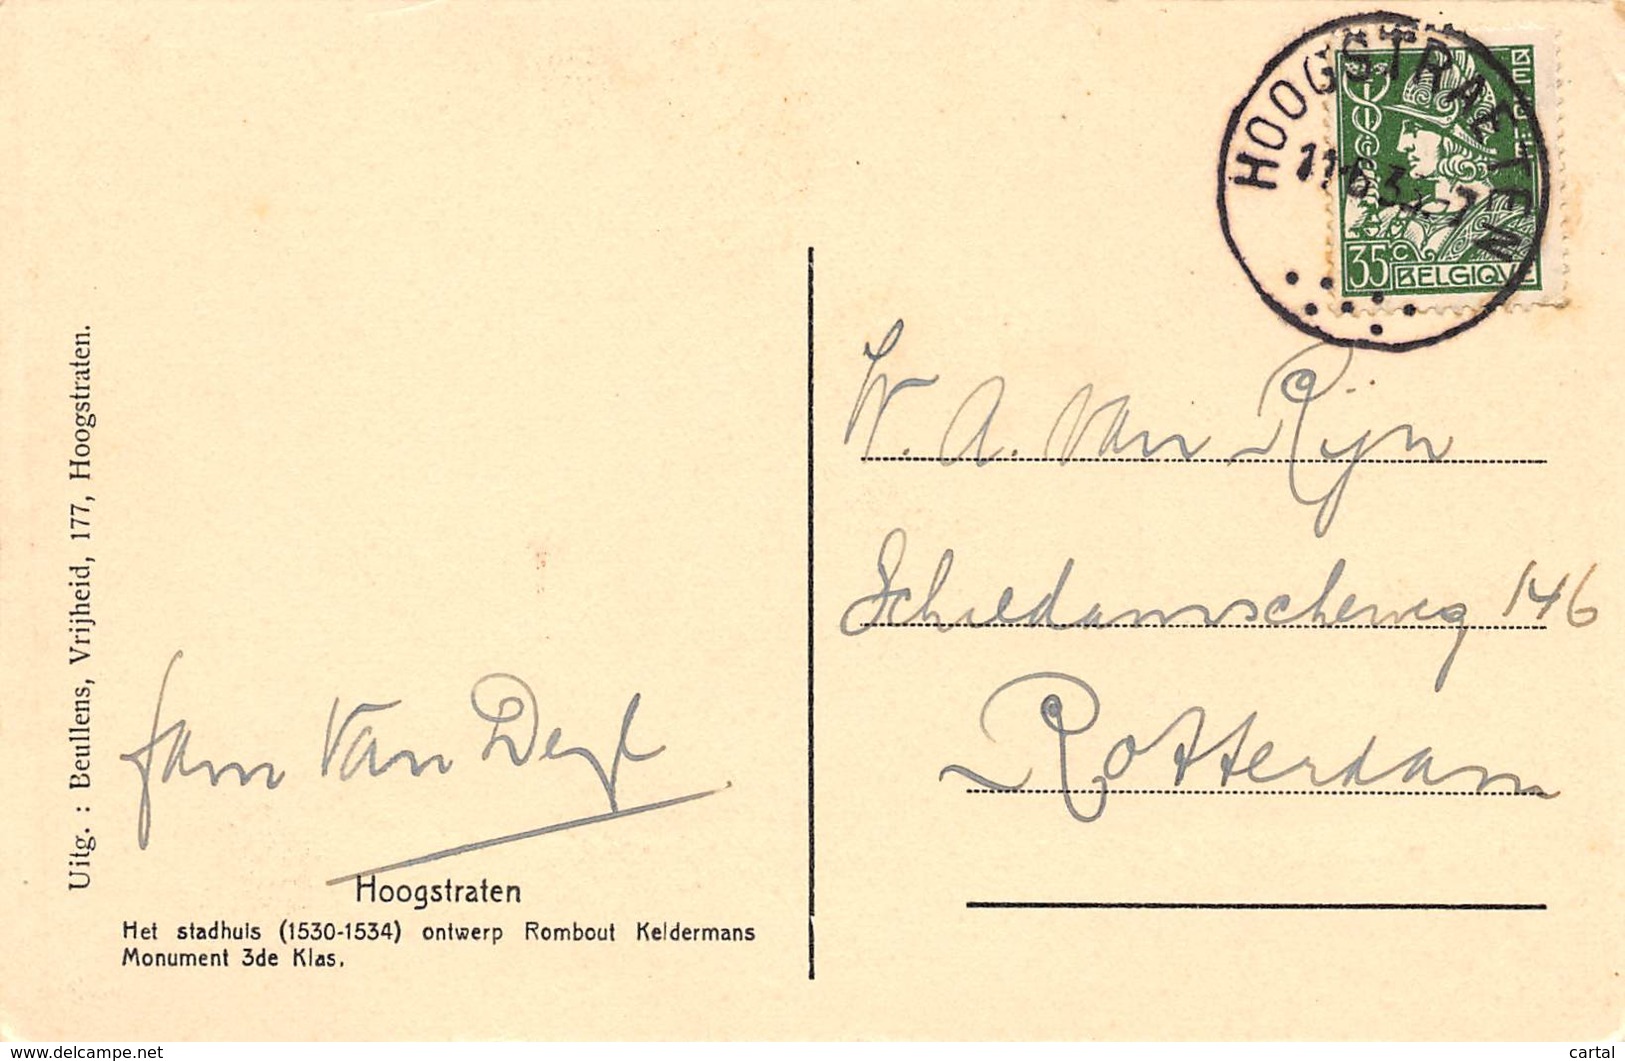 HOOGSTRAETEN
BELGIË
35 c BELGIQVE
W. A. van Rijn
Schiedamscheweg 146
Rotterdam
fam Van
Uitg. : Beullens, Vrijheid, 177, Hoogstraten.
Hoogstraten
Het stadhuis (1530-1534) ontwerp Rombout Keldermans
Monument 3de Klas.
www.delcampe.net
cartal